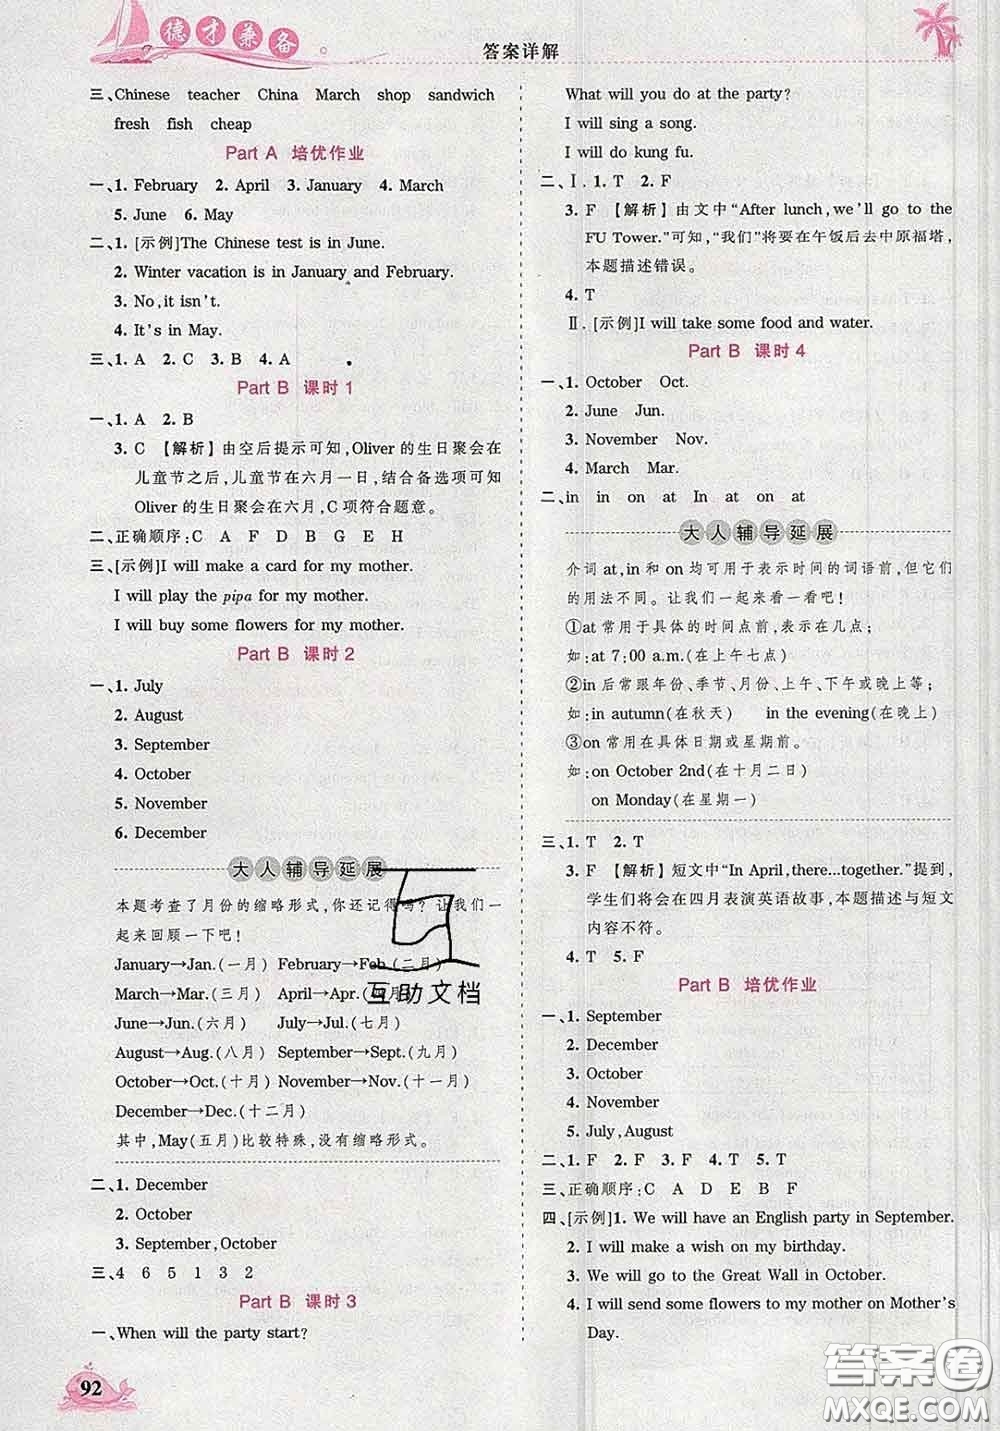 德才兼备
答案详解
三、Chinese teacher China March shop sandwich
fresh fish cheap
Part A 培优作业
一、1. February 2. April 3. January 4. March
5. June 6. May
二、1. [示例]The Chinese test is in June.
2. Winter vacation is in January and February.
3. No,it isn't.
4. It's in May.
三、1. A 2. C 3. B 4. A
Part B 课时1
一、1. A 2. B
3. C 【解析】由空后提示可知,Oliver的生日聚会在
儿童节之后,儿童节在六月一日,结合备选项可知
Oliver的生日聚会在六月,C项符合题意。
二、正确顺序:C A F D B G E H
三、[示例]I will make a card for my mother.
I will play the pipa for my mother.
I will buy some flowers for my mother.
Part B 课时2
一、1. July
2. August
3. September
4. October
5. November
6. December
大人辅导延展
本题考查了月份的缩略形式,你还记得吗?让我们一
起来回顾一下吧!
January→Jan.(一月) February→Feb.(二月)
March→Mar.(三月) April→Apr.(四月)
June→Jun.(六月) July→Jul.(七月)
August→Aug.(八月) September→Sept.(九月)
October→Oct.(十月) November→Nov.(十一月)
December→Dec.(十二月)
其中,May(五月)比较特殊,没有缩略形式。
二、1. December
2. October
3. September,October
三、4 6 5 1 3 2
Part B 课时3
一、When will the party start?
92
What will you do at the party?
I will sing a song.
I will do kung fu.
二、Ⅰ. 1. T 2. F
3. F 【解析】由文中“After lunch,we'll go to the
FU Tower.”可知,“我们”将要在午饭后去中原福塔,
本题描述错误。
4. T
Ⅱ. [示例]I will take some food and water.
Part B 课时4
一、1. October Oct.
2. June Jun.
3. November Nov.
4. March Mar.
二、in in on at In at on at
大人辅导延展
介词at,in和on均可用于表示时间的词语前,但它们
的用法不同。让我们一起来看一看吧!
①at常用于具体的时间点前,表示在几点;
如:at 7:00 a.m.(在上午七点)
②in后常跟年份、季节、月份、上午、下午或晚上等;
如:in autumn(在秋天) in the evening(在晚上)
③on常用在具体日期或星期前。
如:on October 2nd(在十月二日)
on Monday(在星期一)
三、1. T 2. T
3. F 【解析】短文中“In April,there...together.”提到,
学生们将会在四月表演英语故事,本题描述与短文
内容不符。
4. T 5. F
Part B 培优作业
一、1. September
2. December
3. October
4. November
5. July,August
二、1. F 2. F 3. F 4. T 5. T
三、正确顺序:C A D E B F
四、[示例]1. We will have an English party in September.
2. I will make a wish on my birthday.
3. We will go to the Great Wall in October.
4. I will send some flowers to my mother on Mother's
Day.
互助文档
答案卷
MXQE.COM